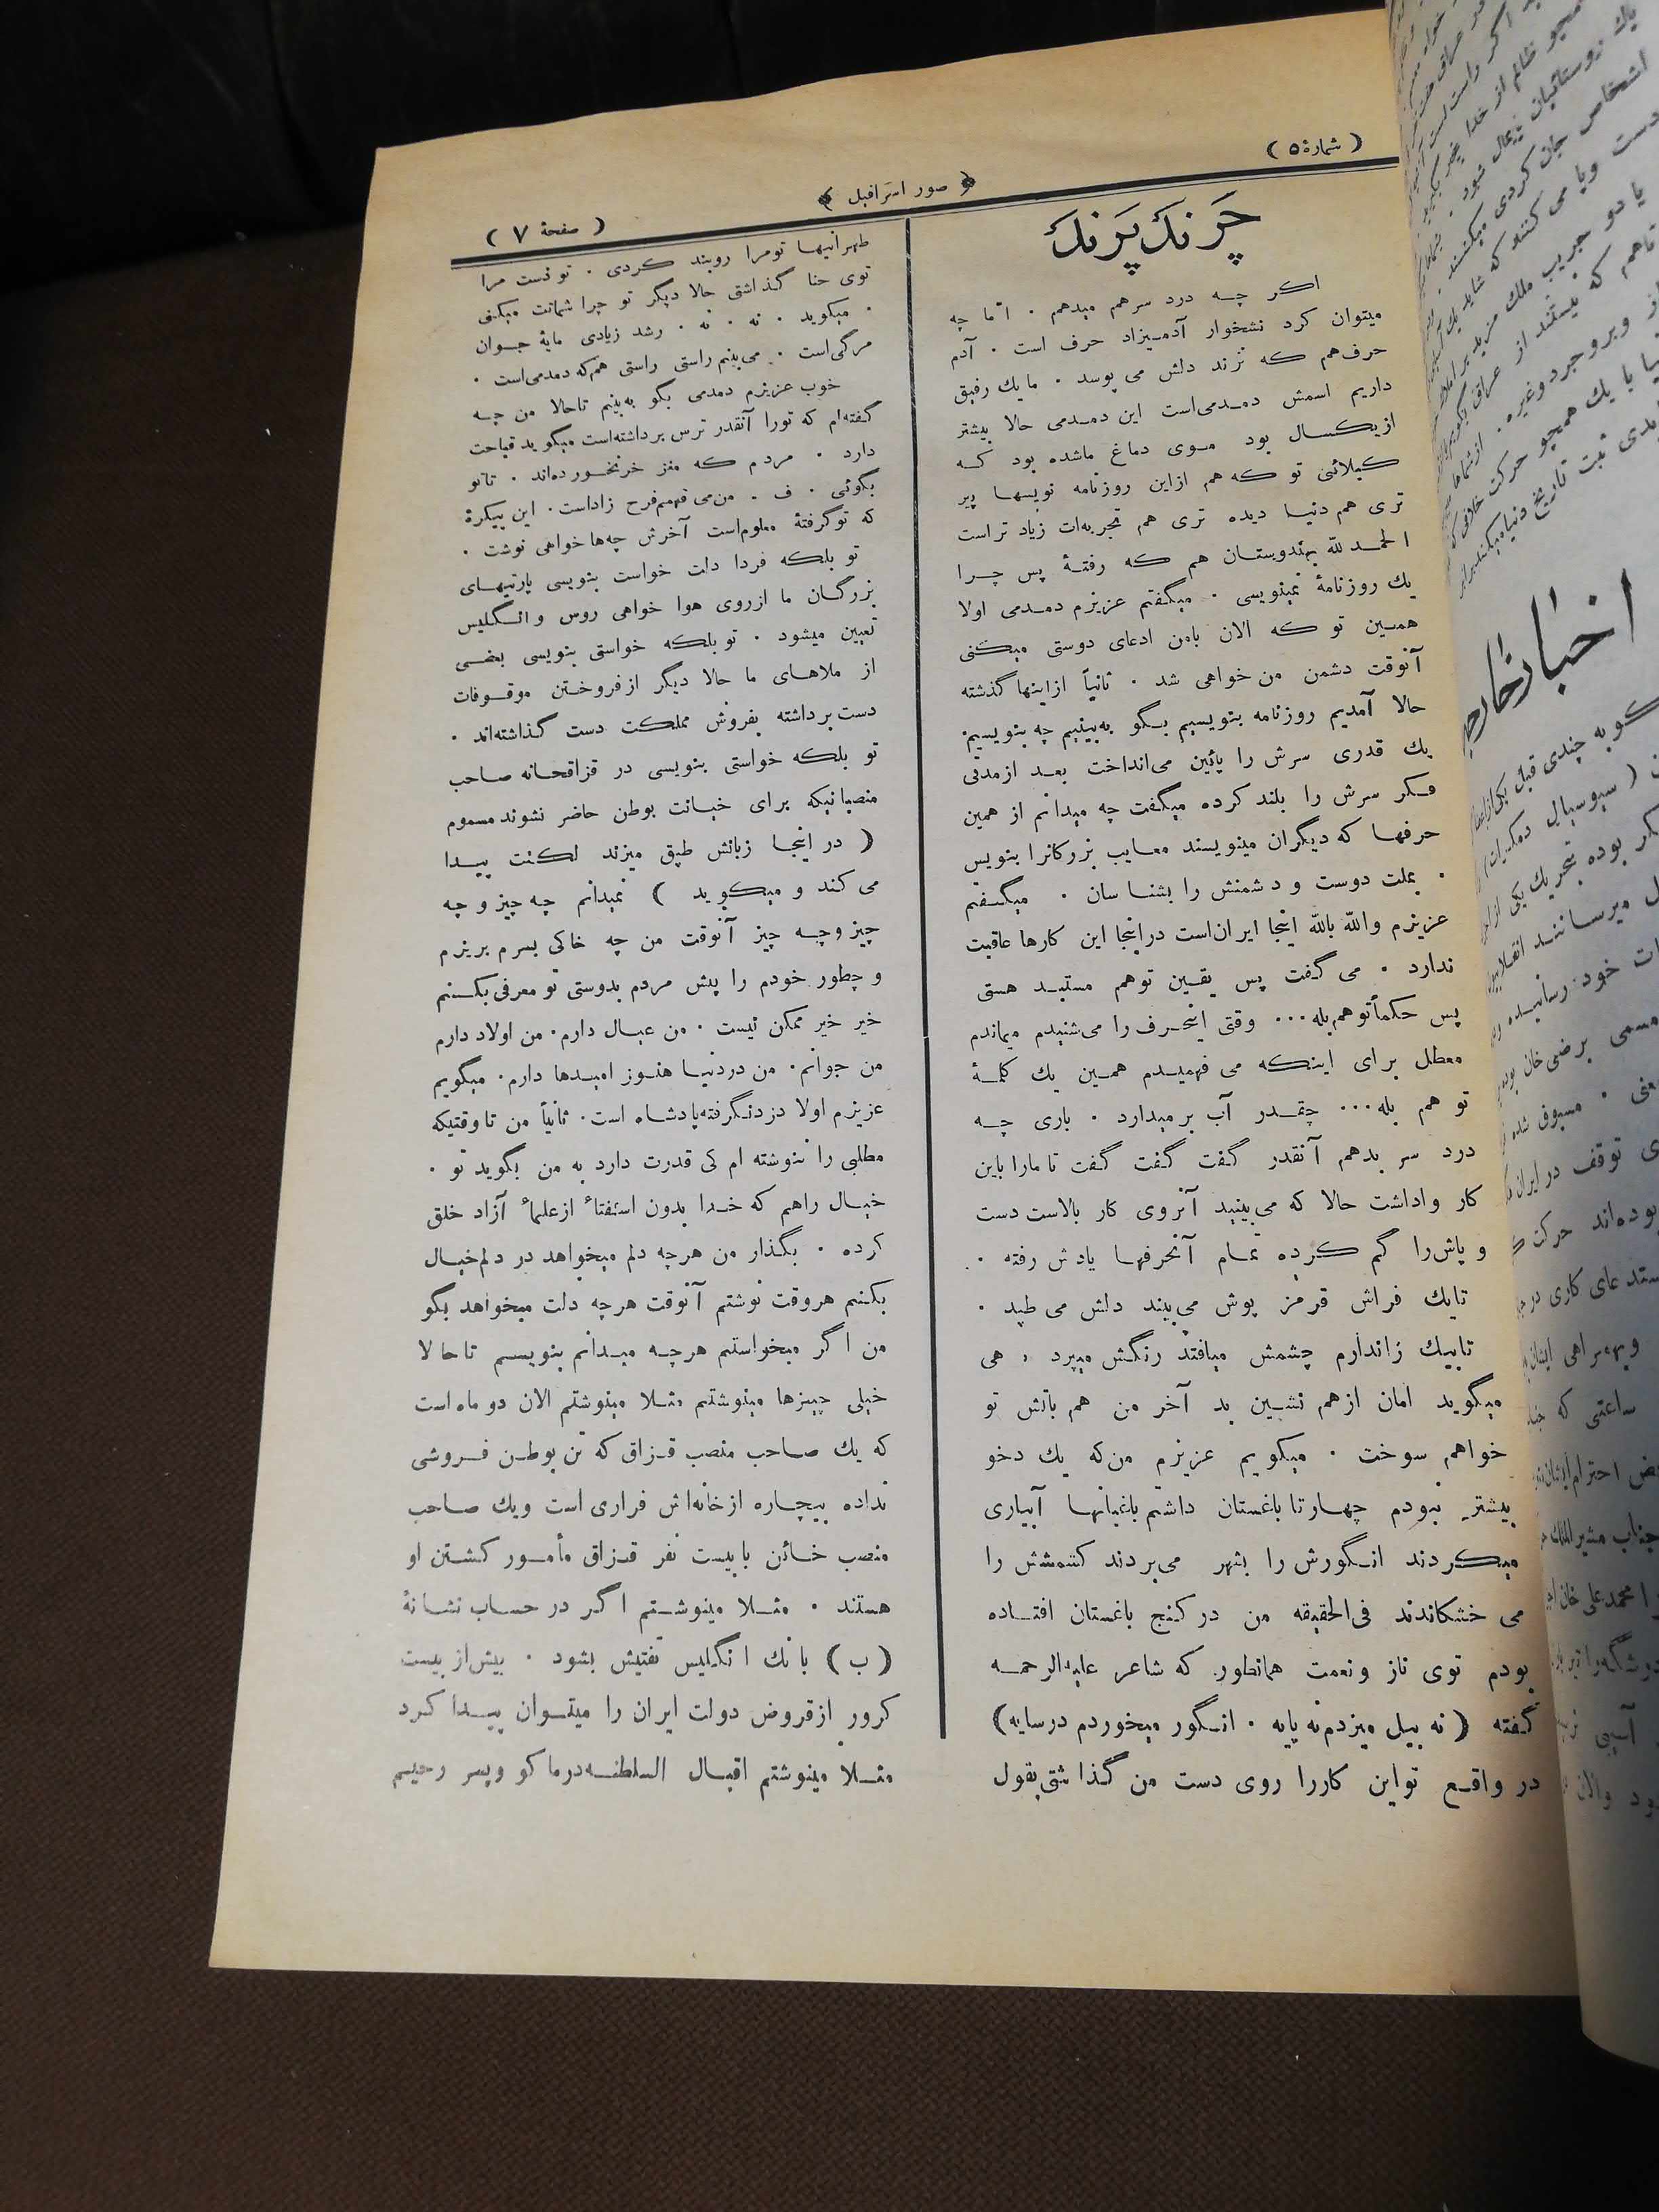 ( شمارهٔ ۵ )
صور اسرافیل
( صفحهٔ ۷ )
چَرَنْدْ پَرَنْدْ
اکر چـه درد سرهم میدهم ۰ اما چه
میتوان کرد نشخوار آدمیزاد حرف است ۰ آدم
حرف هم که نزند دلش می پوسد ۰ ما یك رفیق
داریم اسمش دمدمی است این دمدمی حالا بیشتر
ازیکسال بود موی دماغ ماشده بود که
کبلائی تو که هم ازاین روزنامه نویسها پیر
تری هم دنیا دیده تری هم تجربه‌ات زیاد تراست
الحمد لله بهندوستان هم که رفتهٔ پس چرا
یك روزنامهٔ نمینویسی ۰ میگفتم عزیزم دمدمی اولا
همین تو که الان بامن ادعای دوستی میکنی
آنوقت دشمن من خواهی شد ۰ ثانیاً ازاینها گذشته
حالا آمدیم روزنامه بنویسیم بگو به‌بینیم چه بنویسیم
یك قدری سرش را پائین می‌انداخت بعد ازمدتی
فکر سرش را بلند کرده میگفت چه میدانم از همین
حرفها که دیگران مینویسند معایب بزرکانرا بنویس
۰ بملت دوست و دشمنش را بشناسان ۰ میگفتم
عزیزم والله بالله اینجا ایران‌است دراینجا این کارها عاقبت
ندارد ۰ می گفت پس یقین توهم مستبد هستی
پس حکماً توهم بله... وقتی اینحرف را می‌شنیدم میماندم
معطل برای اینکه می فهمیدم همین یك کلمهٔ
تو هم بله... چقدر آب برمیدارد ۰ باری چه
درد سر بدهم آنقدر گفت گفت گفت تا مارا باین
کار واداشت حالا که می‌بینید آنروی کار بالاست دست
و پاش‌را گم کرده تمام آنحرفها یادش رفته ۰
تایك فراش قرمز پوش می‌بیند دلش می طپد ۰
تابیك ژاندارم چشمش میافتد رنگش میپرد ، هی
میگوید امان ازهم نشین بد آخر من هم باتش تو
خواهم سوخت ۰ میکویم عزیزم من‌که یك دخو
بیشتر نبودم چهارتا باغستان داشتم باغبانها آبیاری
میکردند انگورش را بشهر می‌بردند کشمشش را
می خشکاندند فی‌الحقیقه من در کنج باغستان افتاده
بودم توی ناز ونعمت همانطور که شاعر علیه‌الرحمه
گفته ( نه بیل میزدم نه پایه ۰ انگور میخوردم درسایه)
در واقع تواین کاررا روی دست من گذا شتی بقول
طهرانیها تومرا روبند کردی ۰ تو دست مرا
توی حنا گذاشتی حالا دیگر تو چرا شماتت میکنی
۰ میکوید ۰ نه ۰ نه ۰ رشد زیادی مایهٔ جوان
مرگی است ۰ می‌بینم راستی راستی هم‌که دمدمی‌است ۰
خوب عزیزم دمدمی بگو به‌بینم تاحالا من چه
گفته‌ام که تورا آنقدر ترس برداشته‌است میکوید قباحت
دارد ۰ مردم که مغز خر نخورده‌اند ۰ تاتو
بگوئی ۰ ف ۰ من‌می فهمم فرح زاداست ۰ این پیکرهٔ
که توگرفتهٔ معلوم‌است آخرش چه‌ها خواهی نوشت ۰
تو بلکه فردا دلت خواست بنویسی پارتیهای
بزرگان ما ازروی هوا خواهی روس و انگلیس
تعیین میشود ۰ تو بلکه خواستی بنویسی بعضی
از ملاهای ما حالا دیگر ازفروختن موقوفات
دست برداشته بفروش مملکت دست گذاشته‌اند ۰
تو بلکه خواستی بنویسی در قزاقخانه صاحب
منصبانیکه برای خیانت بوطن حاضر نشوند مسموم
( در اینجا زبانش طپق میزند لکنت پیدا
می کند و میکوید ) نمیدانم چه چیز و چه
چیز وچه چیز آنوقت من چه خاکی بسرم بریزم
و چطور خودم را پیش مردم بدوستی تو معرفی بکنم
خیر خیر ممکن نیست ۰ من عیال دارم ۰ من اولاد دارم
من جوانم ۰ من دردنیا هنوز امیدها دارم ۰ میگویم
عزیزم اولا دزدنگرفته پادشاه است ۰ ثانیاً من تا وقتیکه
مطلبی را ننوشته ام کی قدرت دارد به من بگوید تو ۰
خیال راهم که خدا بدون استفتاء ازعلماء آزاد خلق
کرده ۰ بگذار من هرچه دلم میخواهد در دلم خیال
بکنم هروقت نوشتم آنوقت هرچه دلت میخواهد بگو
من اگر میخواستم هرچه میدانم بنویسم تا حالا
خیلی چیزها مینوشتم مثلا مینوشتم الان دو ماه است
که یك صاحب منصب قزاق که تن بوطن فروشی
نداده بیچاره ازخانه‌اش فراری است ویك صاحب
منصب خائن با بیست نفر قزاق مأمور کشتن او
هستند ۰ مثلا مینوشتم اگر در حساب نشانهٔ
( ب ) بانك انگلیس تفتیش بشود ۰ بیش از بیست
کرور ازقروض دولت ایران را میتوان پیدا کرد
مثلا مینوشتم اقبال السلطنه درماکو وپسر رحیم
اخبار خارجه